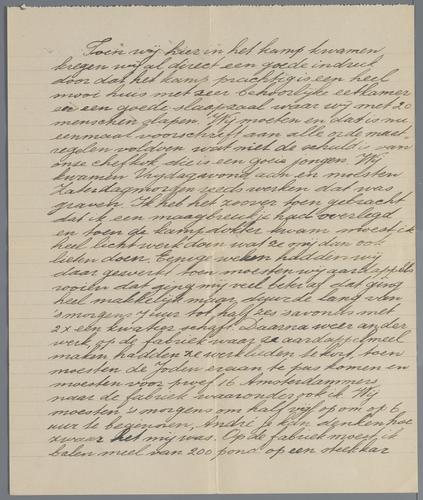 Toen wij hier in het kamp kwamen
kregen wij al direct een goede indruk
door dat het kamp prachtig is een heel
mooi huis met zeer behoorlijke eetkamer
en een goede slaapzaal waar wij met 20
menschen slapen. Wij moeten en dat is nu
eenmaal voorschrift aan alle orde maat
regelen voldoen wat niet de schuld is van
onze chefkok die is een goeie jongen. Wij
kwamen Vrijdagavond aan en mosten
Zaterdagmorgen reeds werken dat was
graven. Ik heb het zoover toen gebracht
dat ik een maagbreukje had overlegd
en toen de kampdokter kwam moest ik
heel licht werk doen wat ze mij dan ook
lieten doen. Eenige weken hadden wij
daar gewerkt toen moesten wij aardappels
rooien dat ging mij veel beter af dat ging
heel makkelijk maar duurde lang van
's morgens 7 uur tot half zes 's avonds met
2 x een kwartier schaft. Daarna weer ander
werk, op de fabriek waar ze aardappelmeel
maken hadden ze werklieden tekort, toen
moesten de Joden eraan te pas komen en
moesten voor 16 Amsterdammers
naar de fabriek waaronder ook ik. Wij
moesten 's morgens om half vijf op om op 6
uur te beginnen, André je kan denken hoe
zwaar het mij was. Op de fabriek moest ik
balen meel van 200 pond op een steekkar